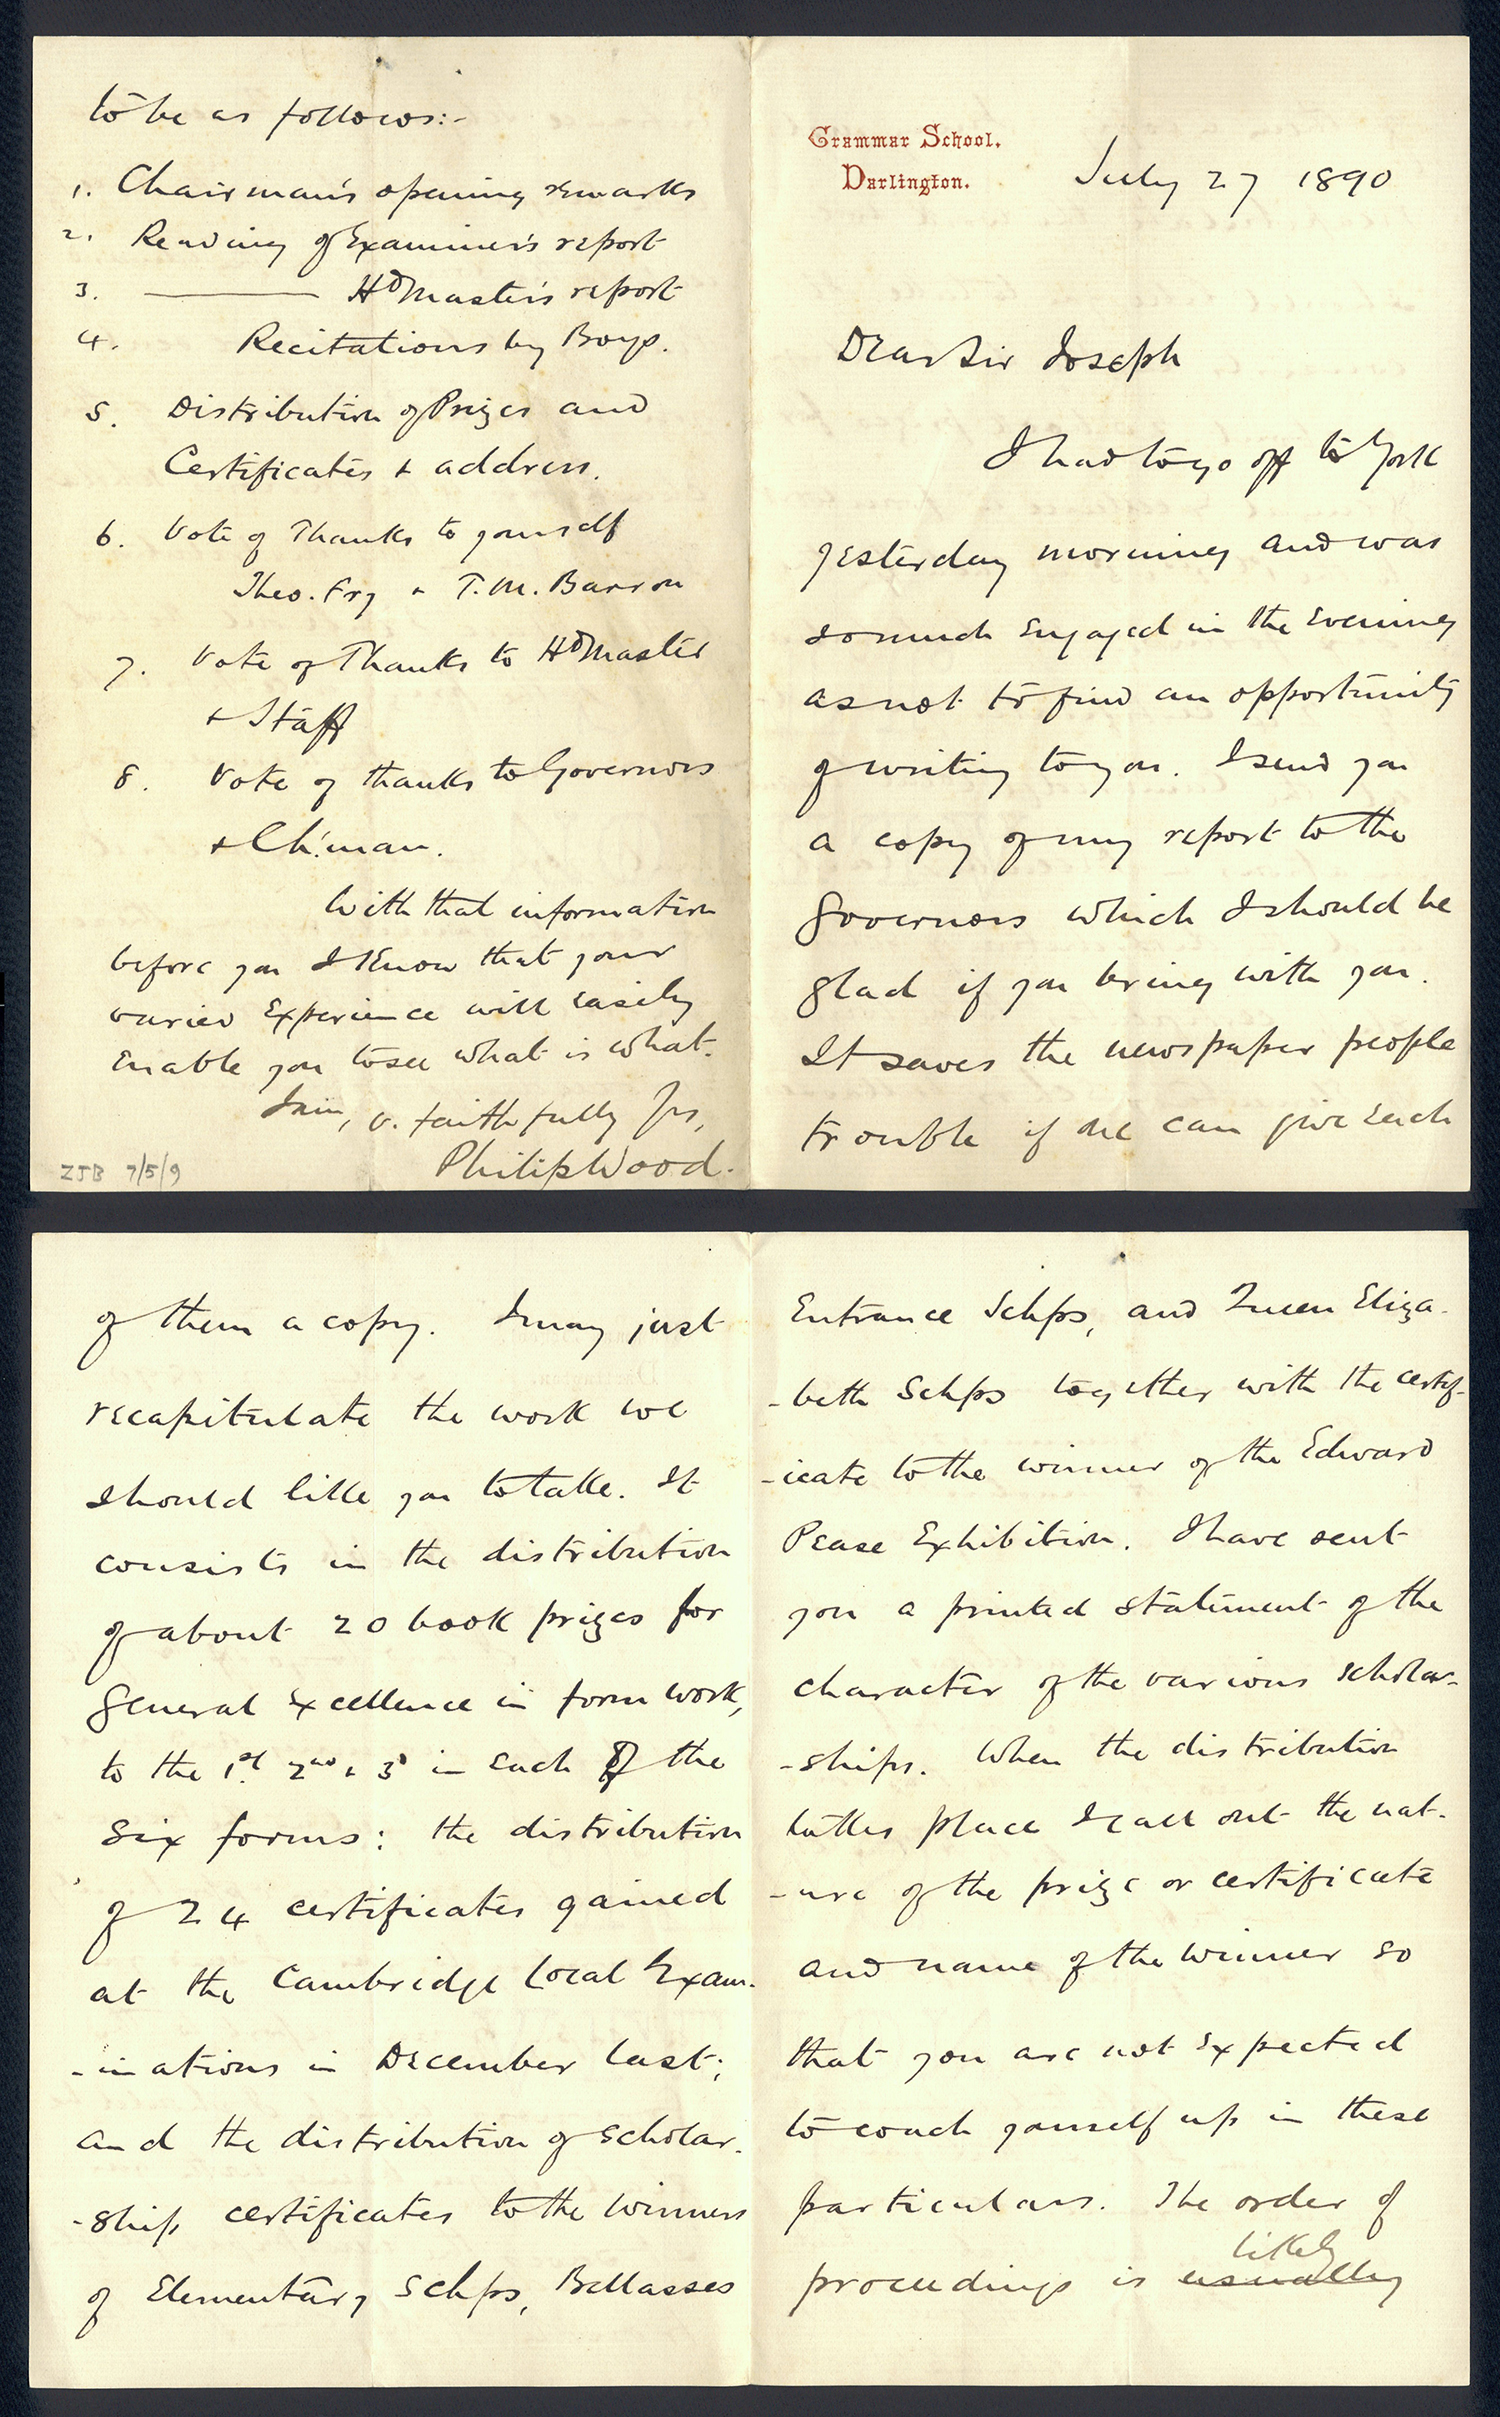 Grammar School.
Darlington.
July 27 1890
Dear Sir Joseph
I had to go off to York
yesterday morning and was
so much engaged in the evening
as not to find an opportunity
of writing to you. I send you
a copy of my report to the
Governors which I should be
glad if you bring with you.
It saves the newspaper people
trouble if one can give each
of them a copy. I may just
recapitulate the work we
should like you to take. It
consists in the distribution
of about 20 book prizes for
General Excellence in form work,
to the 1st 2nd & 3d in each of the
six forms: the distribution
of 24 certificates gained
at the Cambridge Local Exam-
-inations in December last;
and the distribution of scholar-
-ship certificates to the winners
of Elementary Schps, Bellasses
Entrance Schps, and Queen Eliza-
-beth Schps together with the certif-
-icate to the winner of the Edward
Pease Exhibition. I have sent
you a printed statement of the
character of the various scholar-
-ships. When the distribution
takes place I call out the nat-
-ure of the prize or certificate
and name of the winner so
that you are not expected
to coach yourself up in these
particulars. The order of
likely
proceedings is usually
to be as follows:-
1. Chairman's opening remarks
2. Reading of Examiner's report
3. ——— Hd Master's report
4. Recitations by Boys.
5. Distribution of Prizes and
Certificates & address.
6. Vote of Thanks to yourself
Theo. Fry & T. M. Barron
7. Vote of Thanks to Hd Master
& Staff
8. Vote of thanks to Governors
& Ch:man.
With that information
before you I know that your
varied experience will easily
enable you to see what is what.
I am, v. faithfully Yrs,
Philip Wood.
ZJB 7/5/9